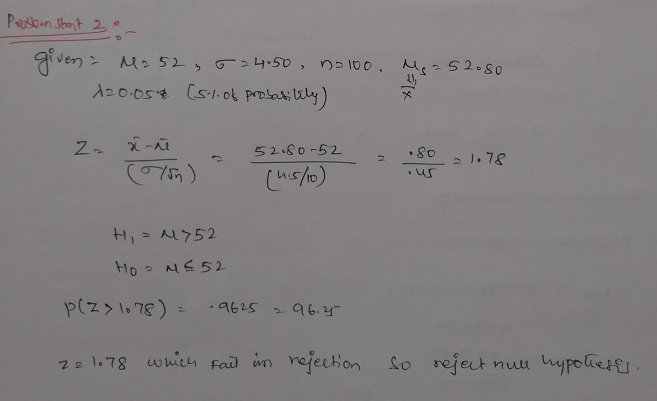 Problem Stmt 2 :-
given = M = 52 , σ = 4.50 , n = 100 , Ms = 52.80
⇓
x̄
λ = 0.05 (5% of probability)
Z = x̄ - M / (σ/√n) = 52.80 - 52 / (4.5/10) = .80 / .45 = 1.78
H1 = M > 52
H0 = M ≤ 52
P(Z > 1.78) = .9625 = 96.25
z = 1.78 which fail in rejection so reject null hypothesis.